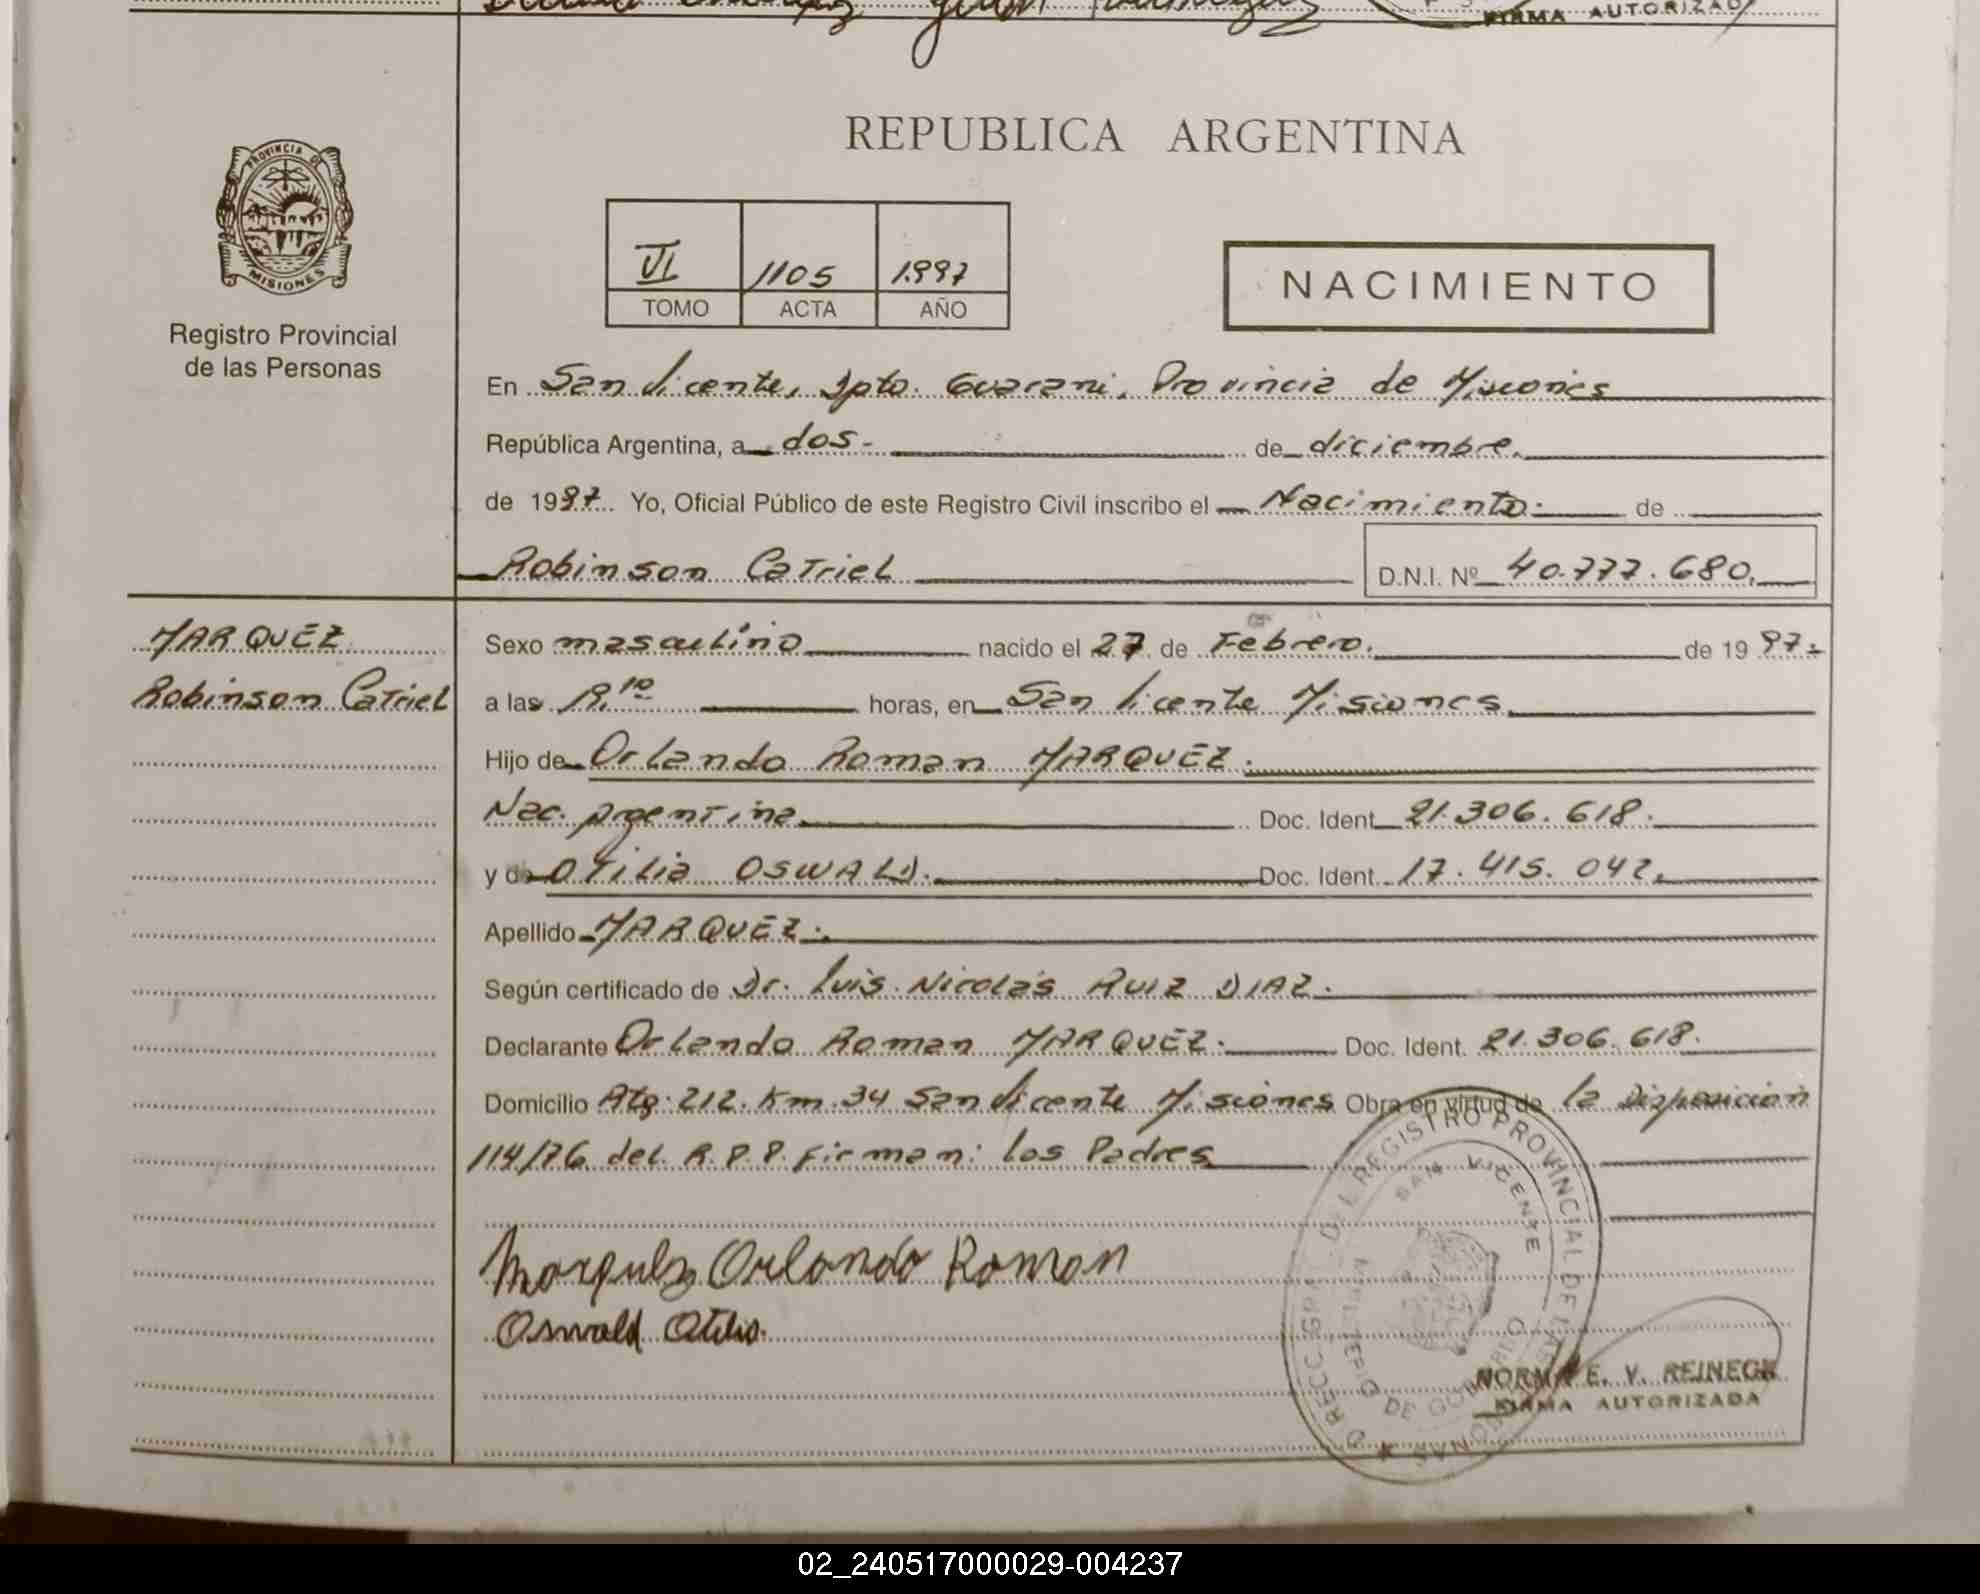 FIRMA AUTORIZAD
REPUBLICA ARGENTINA
PROVINCIA DE
MISIONES
Registro Provincial
de las Personas
VI 1105 1997
TOMO ACTA AÑO
NACIMIENTO
En San Vicente, Dpto. Guarani, Provincia de Misiones
República Argentina, a dos- de diciembre.
de 1997. Yo, Oficial Público de este Registro Civil inscribo el Nacimiento. de
Robinson Catriel D.N.I. Nº 40.777.680.
MARQUEZ
Robinson Catriel
Sexo masculino nacido el 27 de Febrero. de 1997.
a las horas, en San Vicente Misiones.
Hijo de Orlando Roman MARQUEZ.
Nac. Argentina. Doc. Ident. 21.306.618.
y de OTILIA OSWALD. Doc. Ident. 17.415.042.
Apellido MARQUEZ.
Según certificado de Dr. Luis Nicolás RUIZ DIAZ.
Declarante Orlando Roman MARQUEZ. Doc. Ident. 21.306.618.
Domicilio 212. Km. 34 San Vicente Misiones Obra en virtud de la Disposicion
114/76 del R.P.P. Firman: los Padres
Marquez Orlando Roman
Oswald Otilia.
DEL REGISTRO PROVINCIAL DE LAS PERSONAS
SAN VICENTE
NORMA E. V. REINECK
FIRMA AUTORIZADA
02_240517000029-004237